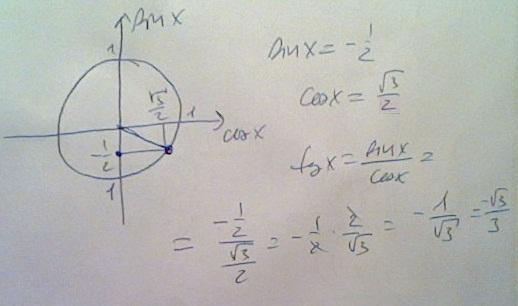 sin x
1
√3/2
1
cos x
-1/2
1
sin x = -1/2
cos x = √3/2
tg x = sin x / cos x =
= (-1/2)/(√3/2) = -1/2 · 2/√3 = -1/√3 = -√3/3